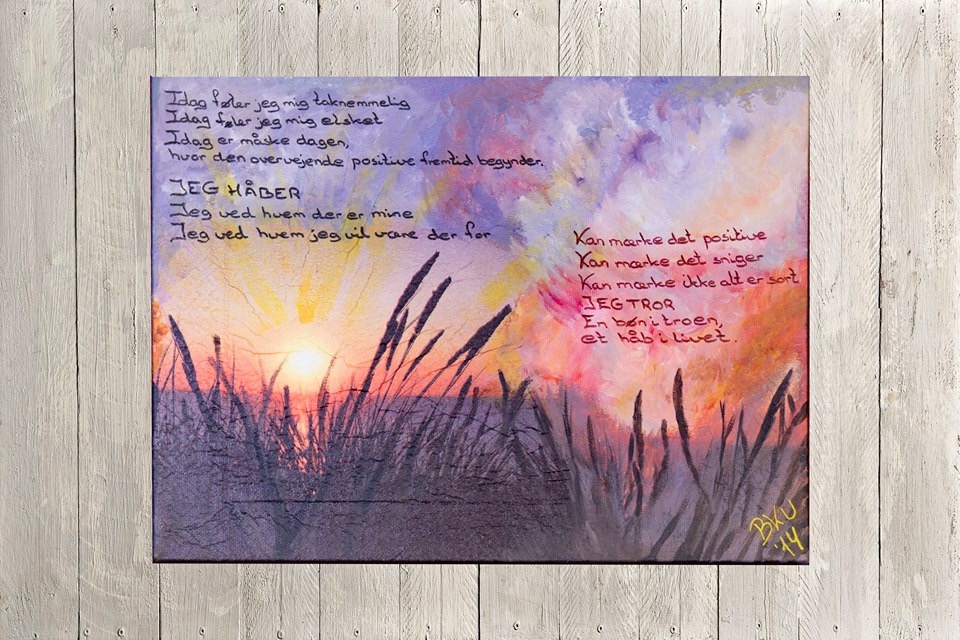 Idag føler jeg mig taknemmelig
Idag føler jeg mig elsket
Idag er måske dagen,
hvor den overvejende positive fremtid begynder.
JEG HÅBER
Jeg ved hvem der er mine
Jeg ved hvem jeg vil være der for
Kan mærke det positive
Kan mærke det sniger
Kan mærke ikke alt er sort
JEG TROR
En bøn i troen,
et håb i livet.
BKU
'14